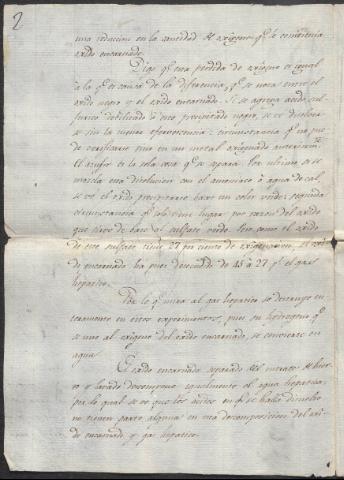 2
una reducción en la cantidad de oxigeno qe. se combinaria
oxido encarnado.
Digo qe. esta perdida de oxigeno es igual
á la qe. es causa de la diferencia, qe. se nota entre el
oxido negro y el oxido encarnado. Si se agrega acido sul-
furico debilitado á este precipitado negro, se ve disolver-
se sin la menor efervescencia: circunstancia qe. no pue-
de verificarse sino en un metal oxigenado anteriormte.
El azufre es la sola cosa qe. se separa. Por ultimo si se
mezcla esta disolucion con el amoniaco ó agua de cal,
se ve el oxido precipitarse bajo un color verde: segunda
circunstancia qe. solo tiene lugar por razon del oxido
que sirve de base al sulfate verde. Pero como el oxido
de este sulfate tiene 27 por ciento de oxigenacion, el oxido
encarnado ha pues descendido de 48 á 27 pr. el gas
hepatico.
Por lo qe. mira al gas hepatico se destruye en-
teramente en estos experimentos, pues su hydrogeno qe.
se une al oxigeno del oxido encarnado, se convierte en
agua.
El oxido encarnado separado del nitrate de hier-
ro y lavado descompone igualmente el agua hepatica;
por lo qual se ve que los acidos en qe. se halla disuelto
no tienen parte alguna en esta decomposicion del oxi-
do encarnado y gas hepatico.